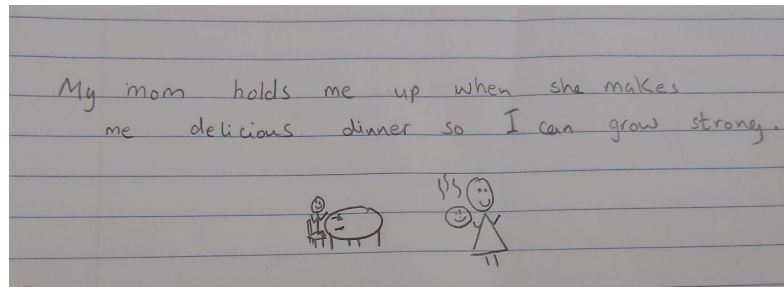 My mom holds me up when she makes
me delicious dinner so I can grow strong.